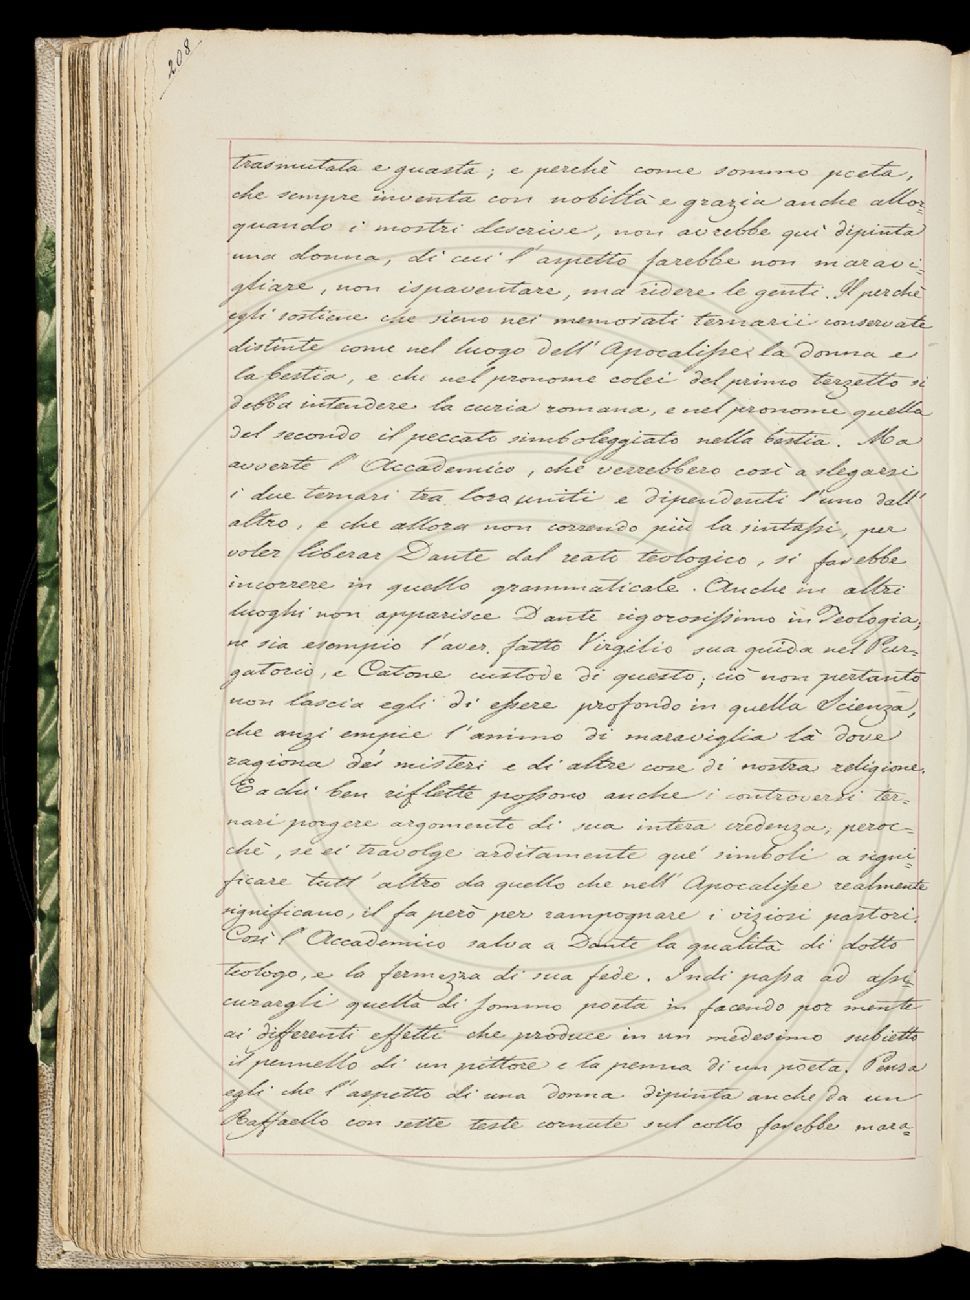 208
trasmutata e guasta; e perchè come sommo poeta,
che sempre inventa con nobiltà e grazia anche allor=
quando i mostri descrive, non avrebbe quì dipinta
una donna, di cui l'aspetto farebbe non maravi=
gliare, non ispaventare, ma ridere le genti. Il perchè
egli sostiene che sieno nei memorati ternarii conservate
distinte come nel luogo dell'Apocalisse la donna e
la bestia, e che nel pronome colei del primo terzetto si
debba intendere la curia romana, e nel pronome quella
del secondo il peccato simboleggiato nella bestia. Ma
avverte l'Accademico, che verrebbero così a slegarsi
i due ternari tra loro uniti e dipendenti l'uno dall'
altro, e che allora non correndo più la sintassi, per
voler liberar Dante dal reato teologico, si farebbe
incorrere in quello grammaticale. Anche in altri
luoghi non apparisce Dante rigorosissimo in Teologia;
ne sia esempio l'aver fatto Virgilio sua guida nel Pur=
gatorio, e Catone custode di questo; ciò non pertanto
non lascia egli di essere profondo in quella Scienza,
che anzi empie l'animo di maraviglia là dove
ragiona de' misteri e di altre cose di nostra religione.
E a chi ben riflette possono anche i controversi ter=
nari porgere argomento di sua intera credenza, peroc=
chè, se ei travolge arditamente que' simboli a signi=
ficare tutt'altro da quello che nell'Apocalisse realmente
significano, il fa però per rampognare i viziosi pastori.
Così l'Accademico salva a Dante la qualità di dotto
teologo, e la fermezza di sua fede. Indi passa ad assi=
curargli quella di sommo poeta in facendo por mente
ai differenti effetti che produce in un medesimo subietto
il pennello di un pittore e la penna di un poeta. Pensa
egli che l'aspetto di una donna dipinta anche da un
Raffaello con sette teste cornute sul collo farebbe mara=